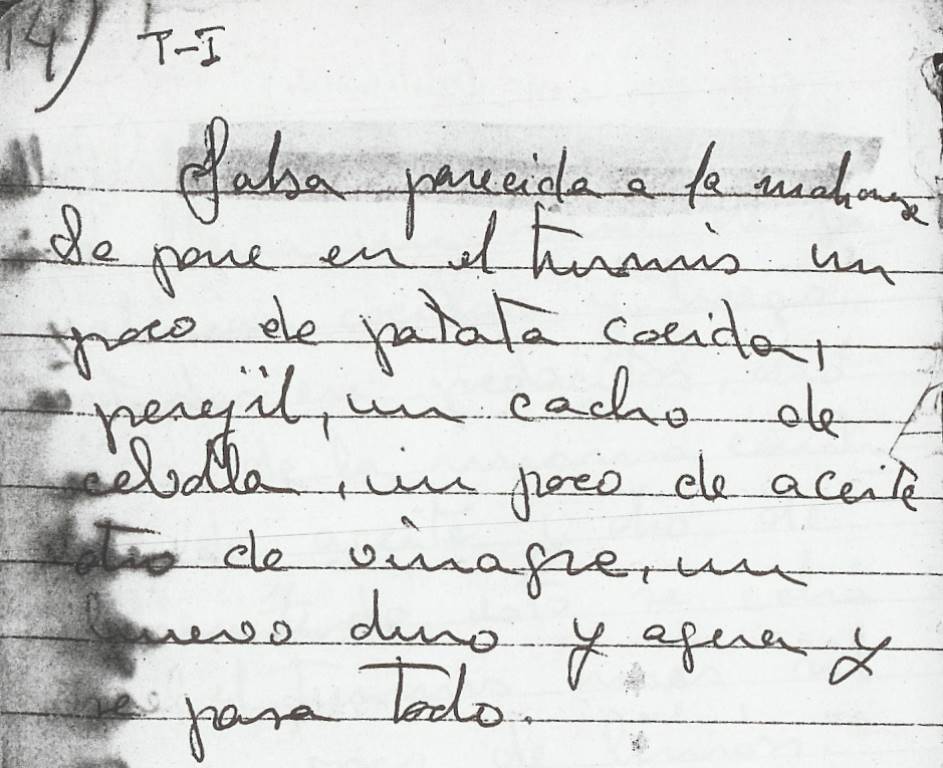 14) T-I
Salsa parecida a la mahonesa
Se pone en el turmis un
poco de patata cocida,
perejil, un cacho de
cebolla, un poco de aceite
otro de vinagre, un
huevo duro y agua y
se pasa todo.